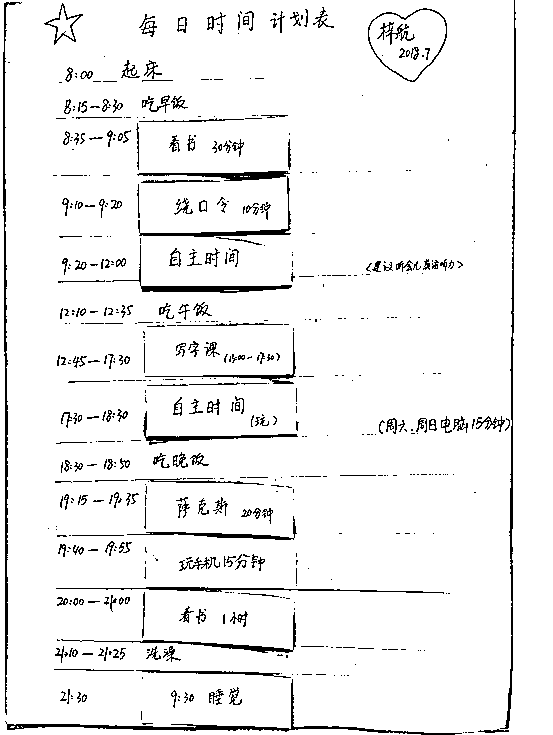 每日时间计划表
梓航
2018.7
8:00 起床
8:15—8:30 吃早饭
8:35—9:05 看书 30分钟
9:10—9:20 绕口令 10分钟
9:20—12:00 自主时间 (建议听会儿英语听力)
12:10—12:35 吃午饭
12:45—17:30 写字课 (15:00-17:30)
17:30—18:30 自主时间 (玩) (周六、周日电脑15分钟)
18:30—18:50 吃晚饭
19:15—19:35 萨克斯 20分钟
19:40—19:55 玩手机15分钟
20:00—21:00 看书 1小时
21:10—21:25 洗澡
21:30 9:30 睡觉